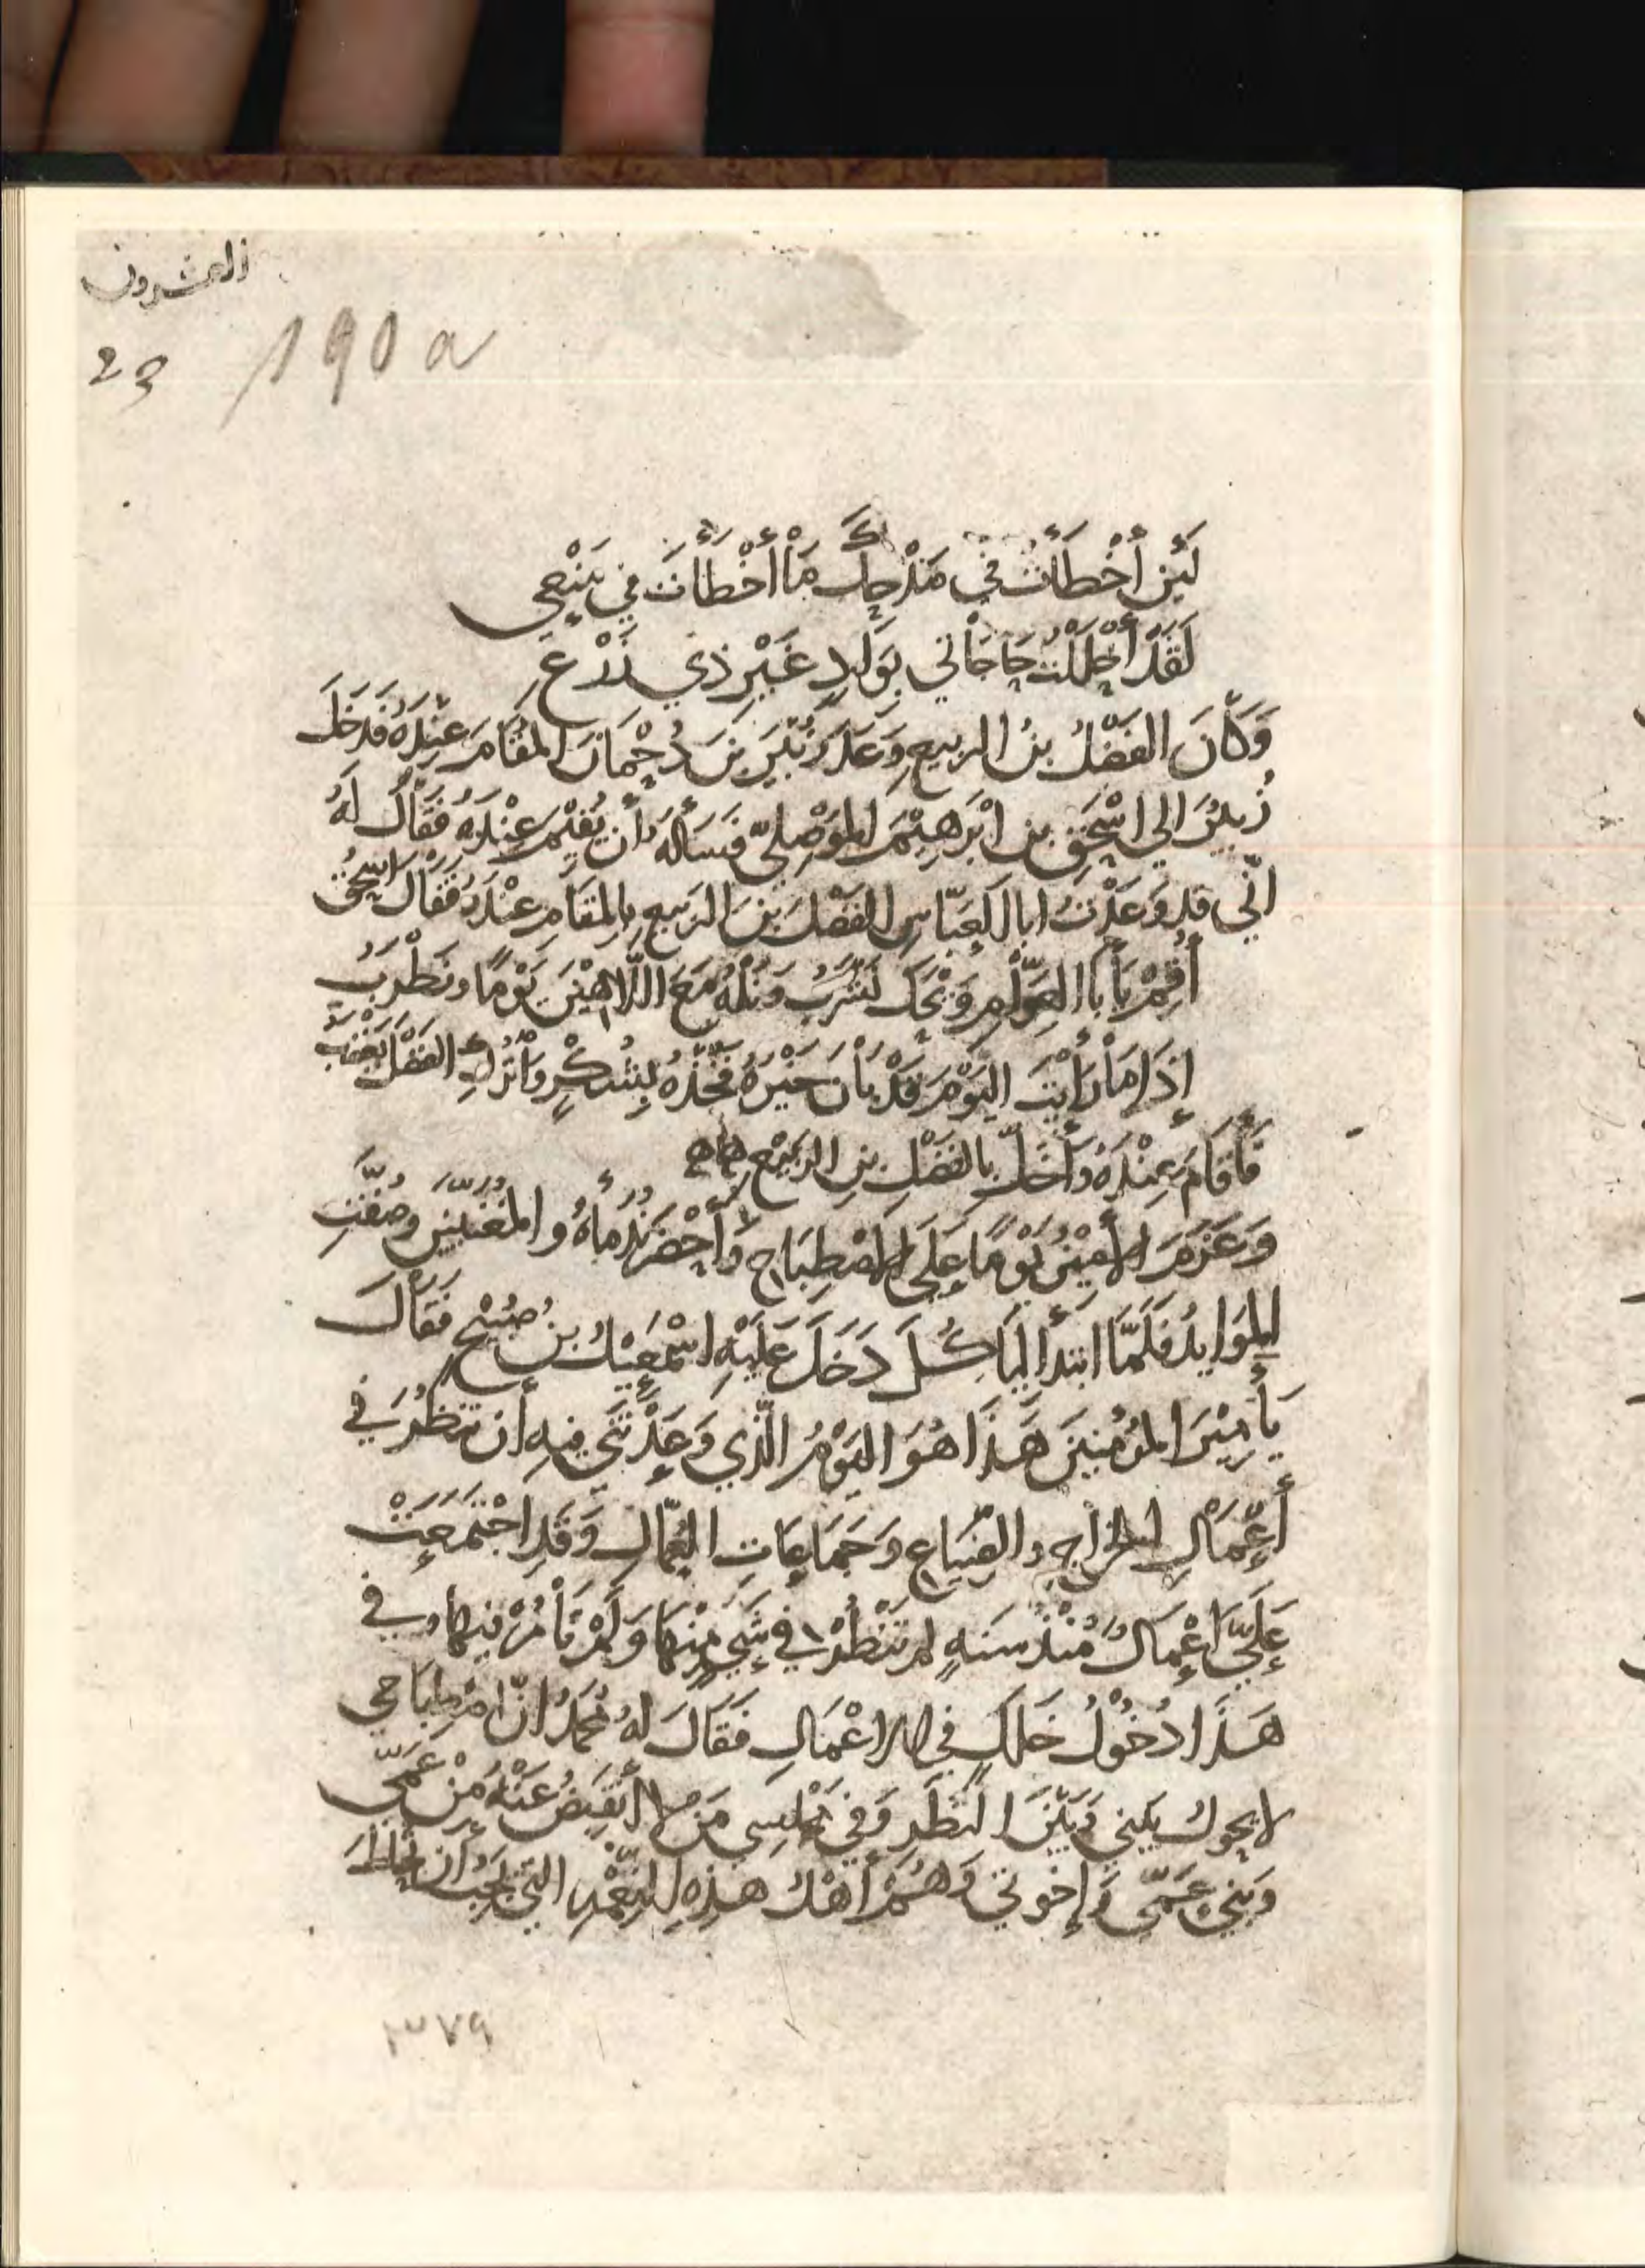 العشرون
23 190 a
لَئِن أَخْطَأْتُ في مَدْحِكَ مَا أَخْطَأْتَ في مَنْعِي
لَقَدْ أَحْلَلْتُ حَاجَاتي بِوَادٍ غَيْرِ ذي زَرْعِ
وَكَانَ الفَضْلُ بنُ الربيعِ وَعَدَ زُبَيْرَ بنَ دُحْمَانَ المُقَامَ عِنْدَهُ فَدَخَلَ
زُبَيْرُ الي اسْحَقِ بنِ ابْرَهِيْمَ المَوْصِليّ فَسَأَلَهُ أن يُقِيْمَ عِنْدَهُ فَقَالَ لَهُ
انّي قد وَعَدْتُ ابا العَبّاسِ الفَضْلَ بنَ الرَبيعِ بِالمُقَامِ عِنْدَهُ فَقَالَ اسحقُ
أَقِمْ يَا بَا العَوّامِ وَيْحَكَ نَشْرَبُ وَنَلْهُ مَعَ اللّاهِيْنَ يَوْمًا ونَطْرَبُ
إذَا مَا رَأَيْتَ اليَوْمَ قَدْ بَانَ خَيْرُهُ فَخُذْهُ بِشُكْرٍ وَاتْرُكِ الفَضْلَ يَغْضَبُ
فَأَقَامَ عِنْدَهُ وَأَخَلَّ بِالفَضْلِ بنِ الرَبيْعِ
وَعَزَمَ الأمِيْنُ يَوْمًا عَلَي الاصْطِبَاحِ وَأَحْضَرَ نُدَمَاهُ والمُغَنّيينَ وصُفّتِ
المَوَايدُ فَلَمّا ابتَدأ لِيَأكُلَ دَخَلَ عَلَيْهِ اسْمَعِيْلُ بنُ صُبَيْحٍ فَقَالَ
يَأمِيْرَ المُؤْمِنِينَ هَذَا هُوَ اليَوْمُ الَّذي وَعَدْتَنِي فيهِ أن تنظُرَ في
أَعْمَالِ الخَرَاجِ والضِّيَاعِ وَجَمَاعَاتِ العُمّالِ وَقَدِ اجْتَمَعَتْ
عَلَيَّ اعْمَالٌ مُنْذُ سَنَةٍ لم تَنْظُرْ في شَيءٍ مِنْهَا وَلَمْ تَأمُرْ فيهَا وفي
هَذَا دُخُوْلُ خَلَلٍ في الاعْمَالِ فَقَالَ لَهُ مُحَمَّدُ انّ اصْطِبَاحي
لا يحول بَيني وَبَيْنَ النَظَرِ وَفي مَجْلِسِي مَنْ لا أنقَبِضُ عَنْهُ مِنْ عَمِّي
وَبَنِي عَمّي وَإخوَتي وَهُمْ أهْلُ هذِهِ النِعْمَةِ التي يَجِبُ أن تُحَاطَ
٣٧٩